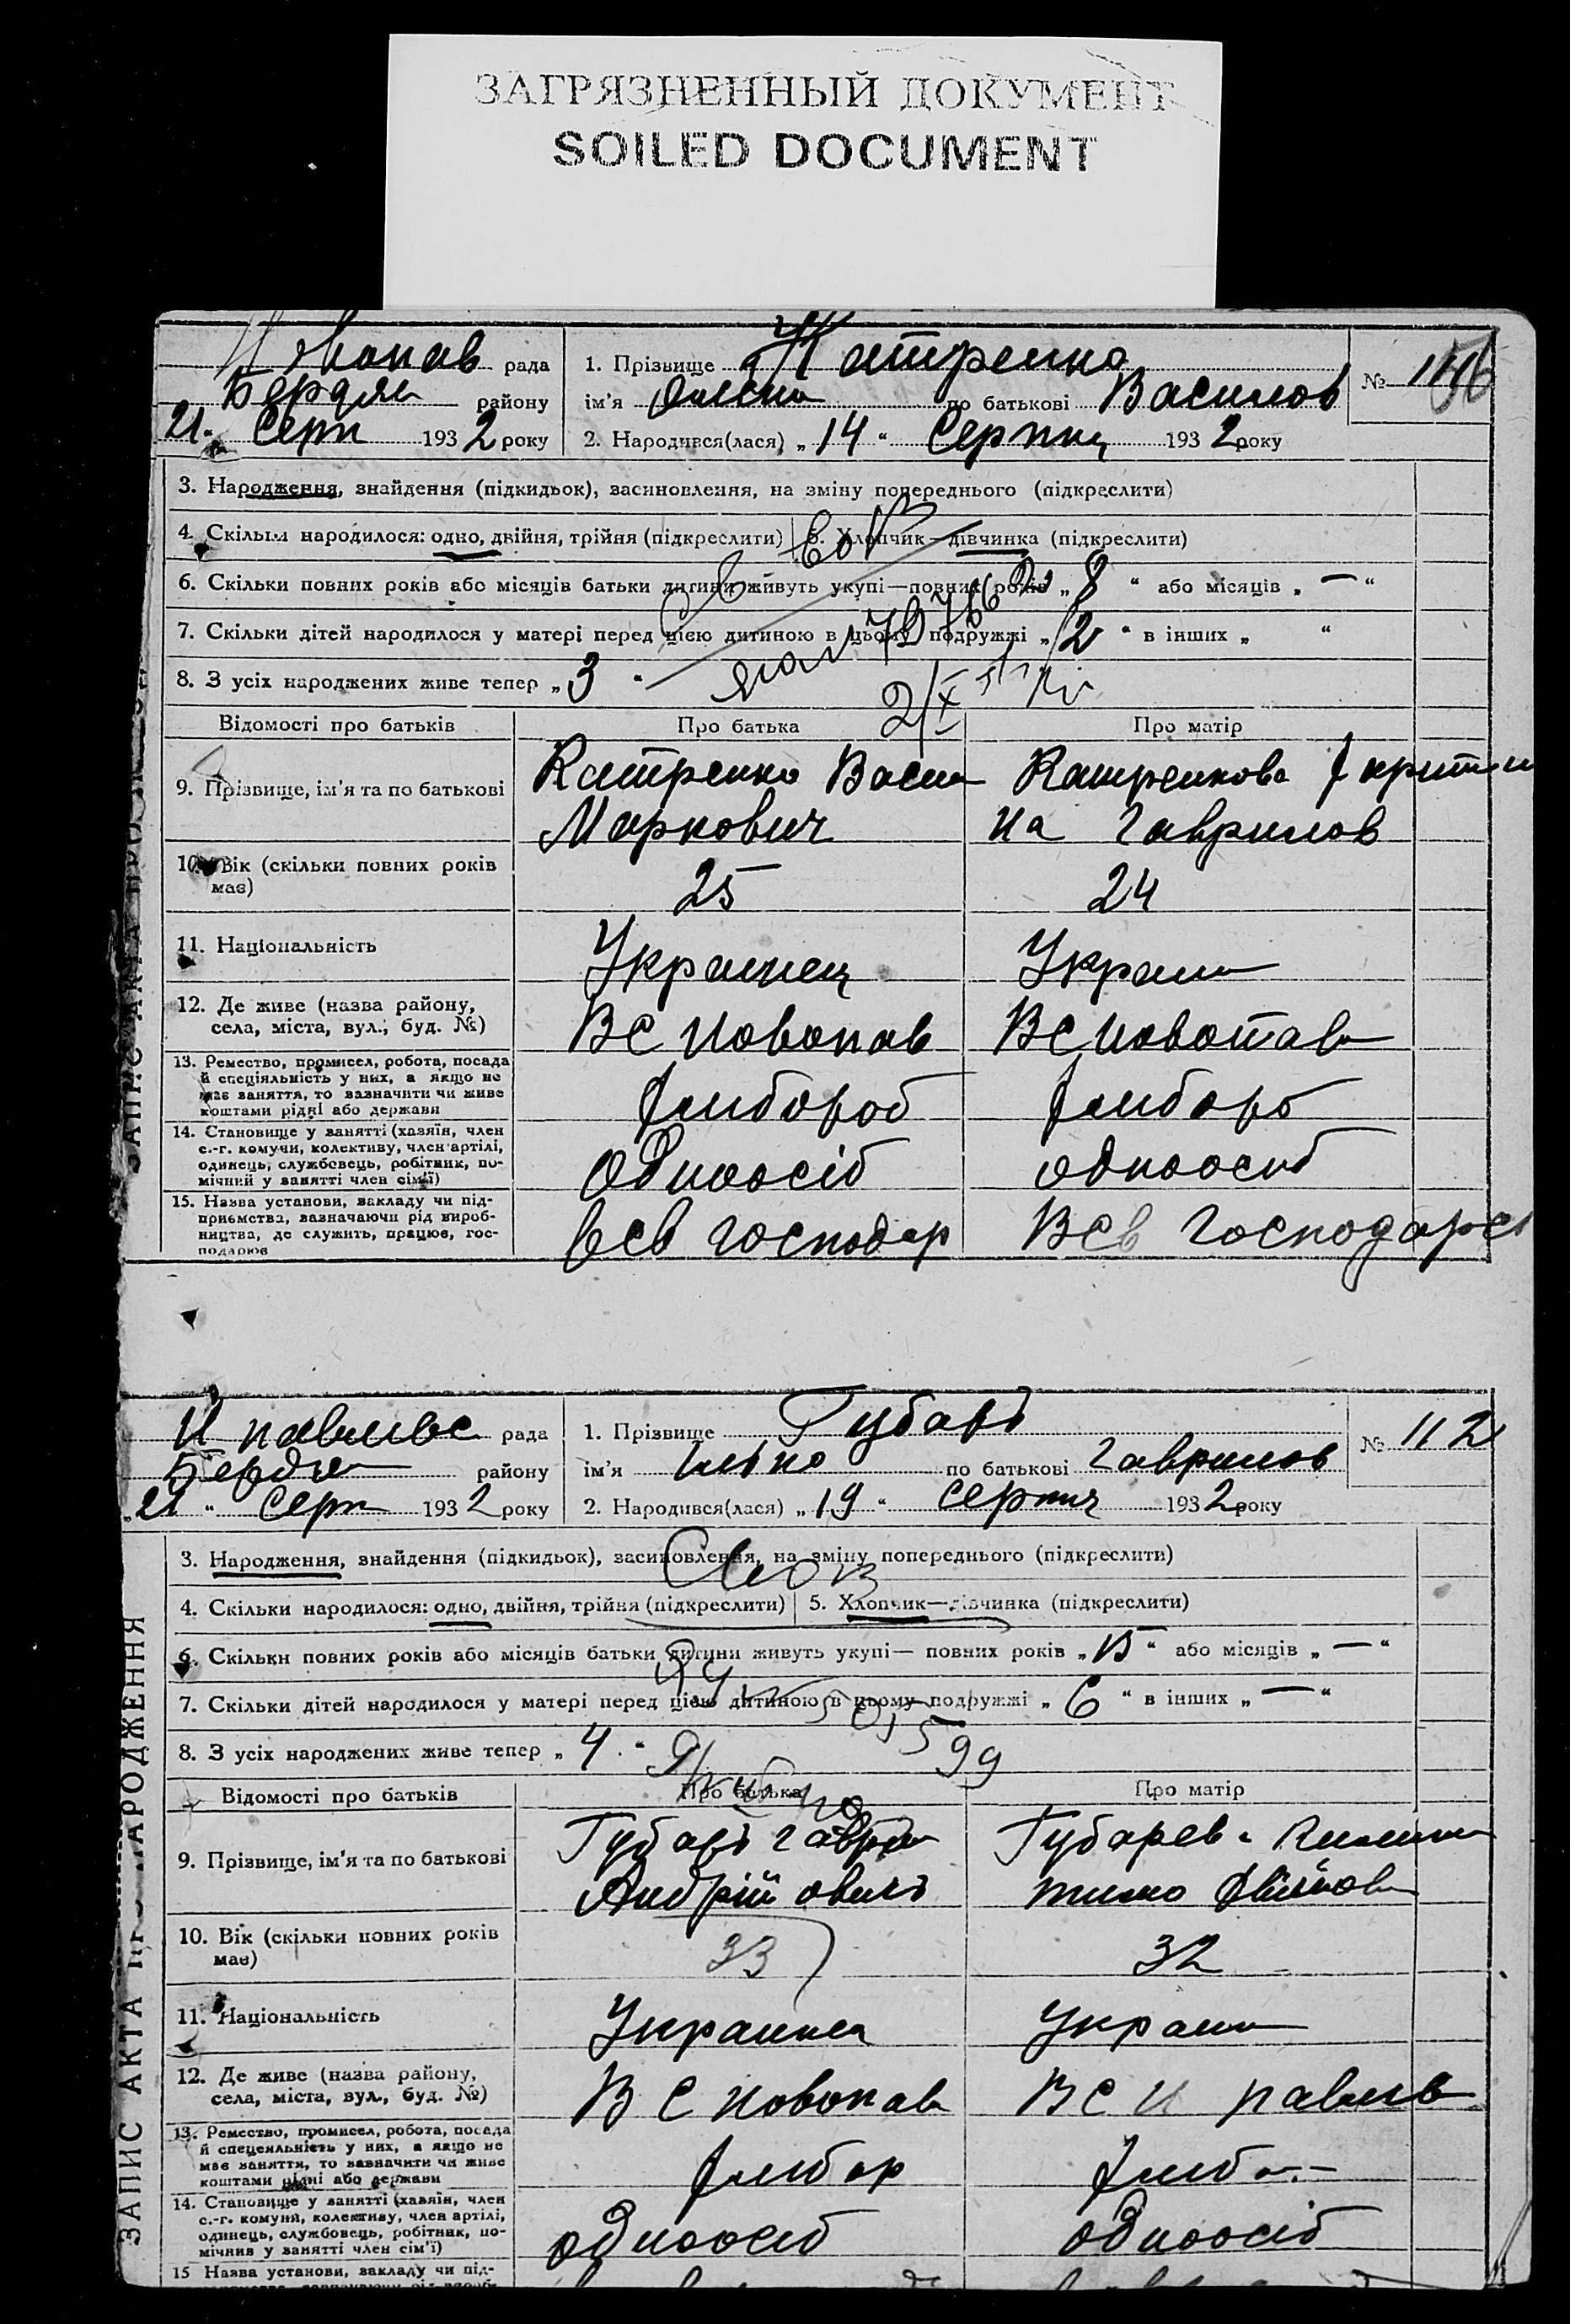 ЗАГРЯЗНЕННЫЙ ДОКУМЕНТ
SOILED DOCUMENT
Новопав рада
Бердян району
21 Серп 1932 року
1. Прізвище Катренко
ім'я по батькові Василов
2. Народився(лася) „14“ Серпня 1932 року
№
3. Народження, знайдення (підкидьок), засиновлення, на зміну попереднього (підкреслити)
4. Скільки народилося: одно, двійня, трійня (підкреслити) 5. Хлопчик—дівчинка (підкреслити)
6. Скільки повних років або місяців батьки дитини живуть укупі—повних років „8“ або місяців „—“
7. Скільки дітей народилося у матері перед цією дитиною в цьому подружжі „2“ в інших „ “
8. З усіх народжених живе тепер „3“
Відомості про батьків Про батька Про матір
9. Прізвище, ім'я та по батькові
Катренко Васил
Маркович
Катренкова
на Гаврилов
10. Вік (скільки повних років має) 25 24
11. Національність Украинец Украин
12. Де живе (назва району,
села, міста, вул., буд. №)
В С Новопав В С Новопав
13. Ремество, промисел, робота, посада
й спеціяльність у них, а якщо не
має заняття, то зазначити чи живе
коштами рідні або держави
Хлибороб Хлиборб
14. Становище у занятті (хазяїн, член
с.-г. комуни, колективу, член артілі,
одинець, службовець, робітник, по-
мічний у занятті член сім'ї)
Одноосіб одноосиб
15. Назва установи, закладу чи під-
приємства, зазначаючи рід вироб-
ництва, де служить, працює, гос-
подарює
всв господар Всв Господарс
Н павливс рада
Бердян району
„21“ Серп 1932 року
1. Прізвище Губарь
ім'я Илько по батькові Гаврилов
2. Народився(лася) „19“ Серпня 1932 року
№ 112
3. Народження, знайдення (підкидьок), засиновлення, на зміну попереднього (підкреслити)
4. Скільки народилося: одно, двійня, трійня (підкреслити) 5. Хлопчик—дівчинка (підкреслити)
6. Скільки повних років або місяців батьки дитини живуть укупі— повних років „15“ або місяців „—“
7. Скільки дітей народилося у матері перед цією дитиною в цьому подружжі „6“ в інших „—“
8. З усіх народжених живе тепер „4“
Відомості про батьків Про батька Про матір
9. Прізвище, ім'я та по батькові
Губарь Гаврил
Андрійович
Губарева
10. Вік (скільки повних років має) 33 32
11. Національність Украинец Украин
12. Де живе (назва району,
села, міста, вул., буд. №)
В С Новопав В С Н павлив
13. Ремество, промисел, робота, посада
й спецеяльність у них, а якщо не
має заняття, то зазначити чи живе
коштами рідні або держави
Хлибор Хлиб
14. Становище у занятті (хазяїн, член
с.-г. комуни, колективу, член артілі,
одинець, службовець, робітник, по-
мічний у занятті член сім'ї)
одноосіб одноосіб
15 Назва установи, закладу чи під-
ЗАПИС АКТА ПРО НАРОДЖЕННЯ